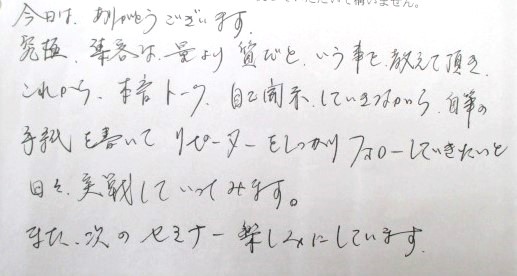 いただいて構いません。
今日は、ありがとうございます。
究極、集客は、量より質だと、いう事を、教えて頂き、
これから、本音トーク、自己開示、していきながら、自筆の
手紙を書いて リピーターをしっかりフォローしていきたいと
日々、実戦していってみます。
また、次のセミナー楽しみにしています。